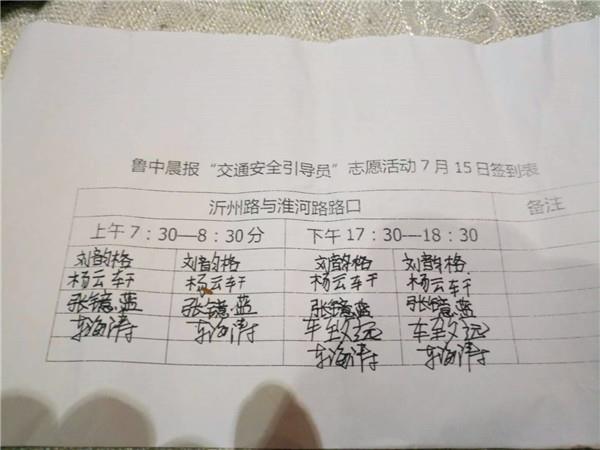 鲁中晨报“交通安全引导员”志愿活动7月15日签到表
沂州路与淮河路路口 备注
上午7：30—8：30分 下午17：30—18：30
刘韵格 刘韵格 刘韵格 刘韵格
杨云轩 杨云轩 杨云轩 杨云轩
张镱蓝 张镱蓝 张镱蓝 张镱蓝
车海涛 车海涛 车致远 车致远
车海涛 车海涛